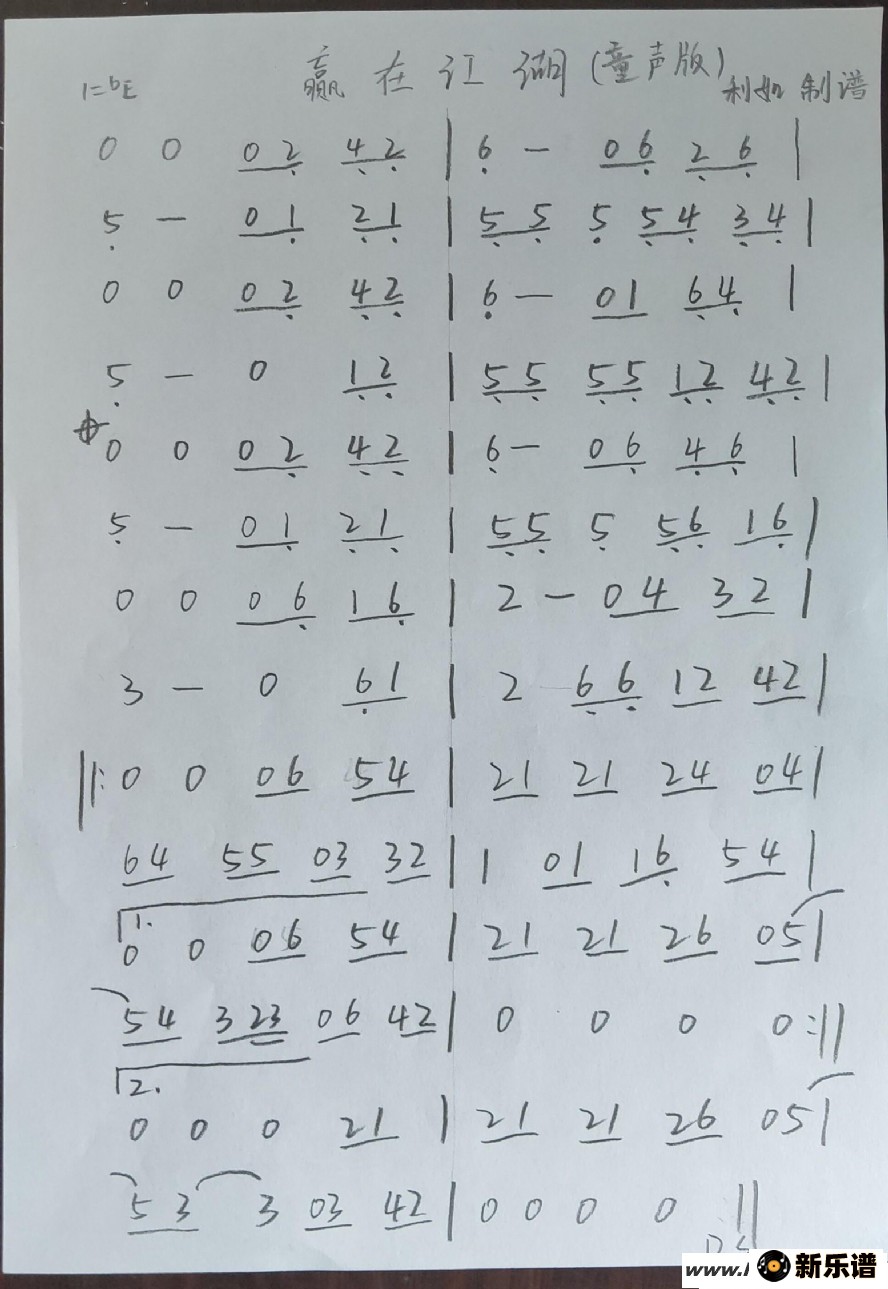 1=bE 赢在江湖(童声版) 利如制谱
0 0 02 42 | 6 - 06 26 |
5 - 01 21 | 55 5 54 34 |
0 0 02 42 | 6 - 01 64 |
5 - 0 12 | 55 55 12 42 |
0 0 02 42 | 6 - 06 46 |
5 - 01 21 | 55 5 56 16 |
0 0 06 16 | 2 - 04 32 |
3 - 0 61 | 2 66 12 42 |
||: 0 0 06 54 | 21 21 24 04 |
64 55 03 32 | 1 01 16 54 |
1.
0 0 06 54 | 21 21 26 05 |
54 323 06 42 | 0 0 0 0 :||
2.
0 0 0 21 | 21 21 26 05 |
53 3 03 42 | 0 0 0 0 ||
www. 新乐谱